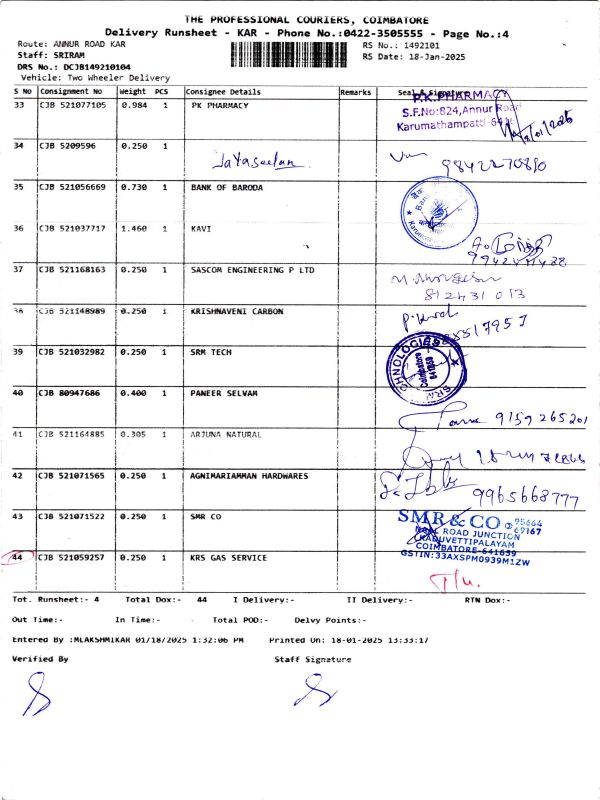 THE PROFESSIONAL COURIERS, COIMBATORE
Delivery Runsheet - KAR - Phone No.:0422-3505555 - Page No.:4
Route: ANNUR ROAD KAR RS No.: 1492101
Staff: SRIRAM RS Date: 18-Jan-2025
DRS No.: DCJB149210104
Vehicle: Two Wheeler Delivery
S NO Consignment No Weight PCS Consignee Details Remarks Seal & Signature
33 CJB 521077105 0.984 1 PK PHARMACY
P.K.PHARMACY
S.F.No:824,Annur Road
Karumathampatti-
34 CJB 5209596 0.250 1
9842270890
35 CJB 521056669 0.730 1 BANK OF BARODA
36 CJB 521037717 1.460 1 KAVI
37 CJB 521168163 0.250 1 SASCOM ENGINEERING P LTD
38 CJB 521148989 0.250 1 KRISHNAVENI CARBON
39 CJB 521032982 0.250 1 SRM TECH
Coimbatore
40 CJB 80947686 0.400 1 PANEER SELVAM
9159265201
41 CJB 521164885 0.305 1 ARJUNA NATURAL
42 CJB 521071565 0.250 1 AGNIMARIAMMAN HARDWARES
9965668777
43 CJB 521071522 0.250 1 SMR CO
SMR & CO 95664
69167
ROAD JUNCTION
KADUVETTIPALAYAM
COIMBATORE-641659
GSTIN:33AXSPM0939M1ZW
44 CJB 521059257 0.250 1 KRS GAS SERVICE
Tot. Runsheet:- 4 Total Dox:- 44 I Delivery:- II Delivery:- RTN Dox:-
Out Time:- In Time:- Total POD:- Delvy Points:-
Entered By :MLAKSHMIKAR 01/18/2025 1:32:06 PM Printed On: 18-01-2025 13:33:17
Verified By Staff Signature